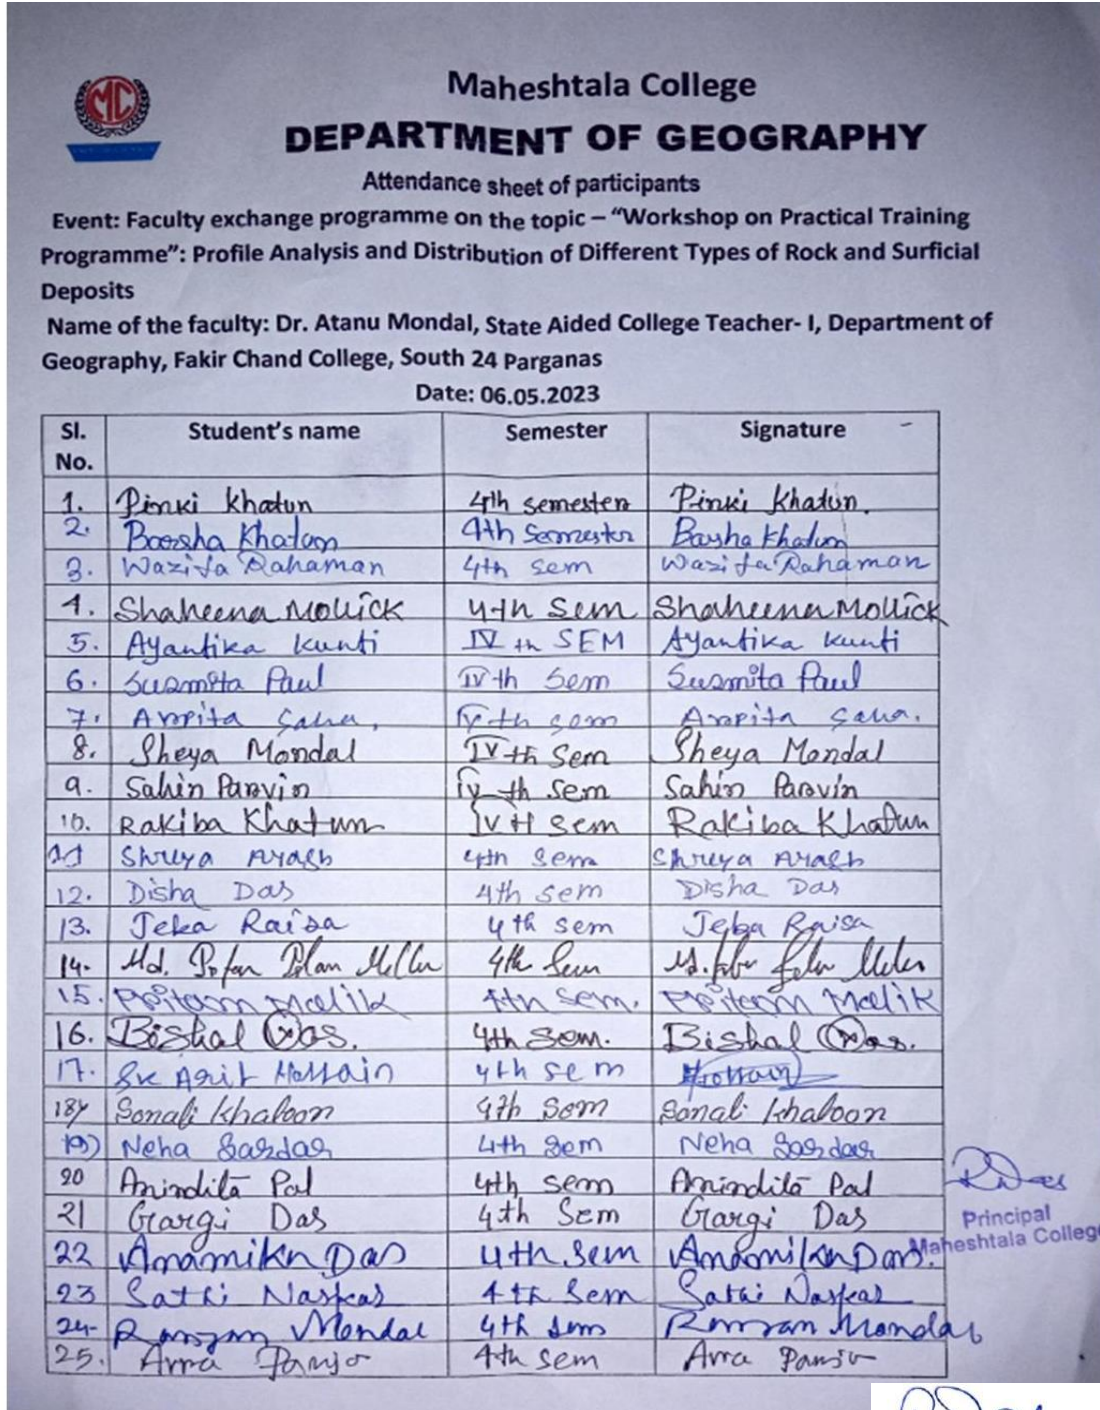 MC
Maheshtala College
DEPARTMENT OF GEOGRAPHY
Attendance sheet of participants
Event: Faculty exchange programme on the topic – “Workshop on Practical Training
Programme”: Profile Analysis and Distribution of Different Types of Rock and Surficial
Deposits
Name of the faculty: Dr. Atanu Mondal, State Aided College Teacher- I, Department of
Geography, Fakir Chand College, South 24 Parganas
Date: 06.05.2023
Sl. No. Student’s name Semester Signature
1. Pinki Khatun 4th semester Pinki Khatun.
2. Khatun 4th Semester Barsha Khatun
3. Wazifa Rahaman 4th sem Wazifa Rahaman
4. Shaheena Mollick 4th Sem Shaheena Mollick
5. Ayantika Kunti IV th SEM Ayantika Kunti
6. Susmita Paul IV th Sem Susmita Paul
7. Arpita Saha, IV th sem Arpita Saha.
8. Sheya Mondal IV th Sem Sheya Mondal
9. Sahin Parvin IV th sem Sahin Parvin
10. Rakiba Khatun IV th sem Rakiba Khatun
11 Shreya 4th Sem Shreya
12. Disha Das 4th sem Disha Das
13. Raisa 4th sem Jeba Raisa
14. Md. 4th Sem Md.
15. Pritam Malik 4th sem. Pritam Malik
16. Bishal Das. 4th Sem. Bishal Das.
17. Sk Arif Hossain 4th sem Hossain
18) Sonali Khatoon 4th Sem Sonali Khatoon
19) Neha Sardar 4th Sem Neha Sardar
20 Anindita Pal 4th sem Anindita Pal
21 Gargi Das 4th Sem Gargi Das
Principal
22 Anamika Das 4th Sem Anamika Das.
Maheshtala College
23 Sathi Naskar 4th Sem Sathi Naskar
24- Mondal 4th Sem Mondal
25. 4th sem